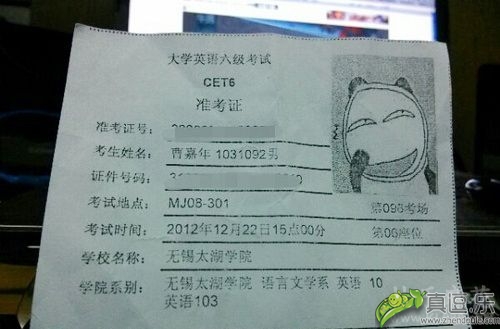 大学英语六级考试
CET6
准考证
准考证号：
考生姓名： 曹嘉年 1031092男
证件号码：
考试地点： MJ08-301 第096考场
考试时间： 2012年12月22日15点00分 第06座位
学校名称： 无锡太湖学院
学院系别： 无锡太湖学院 语言文学系 英语 10
英语103
真逗乐
www.zhendoule.com